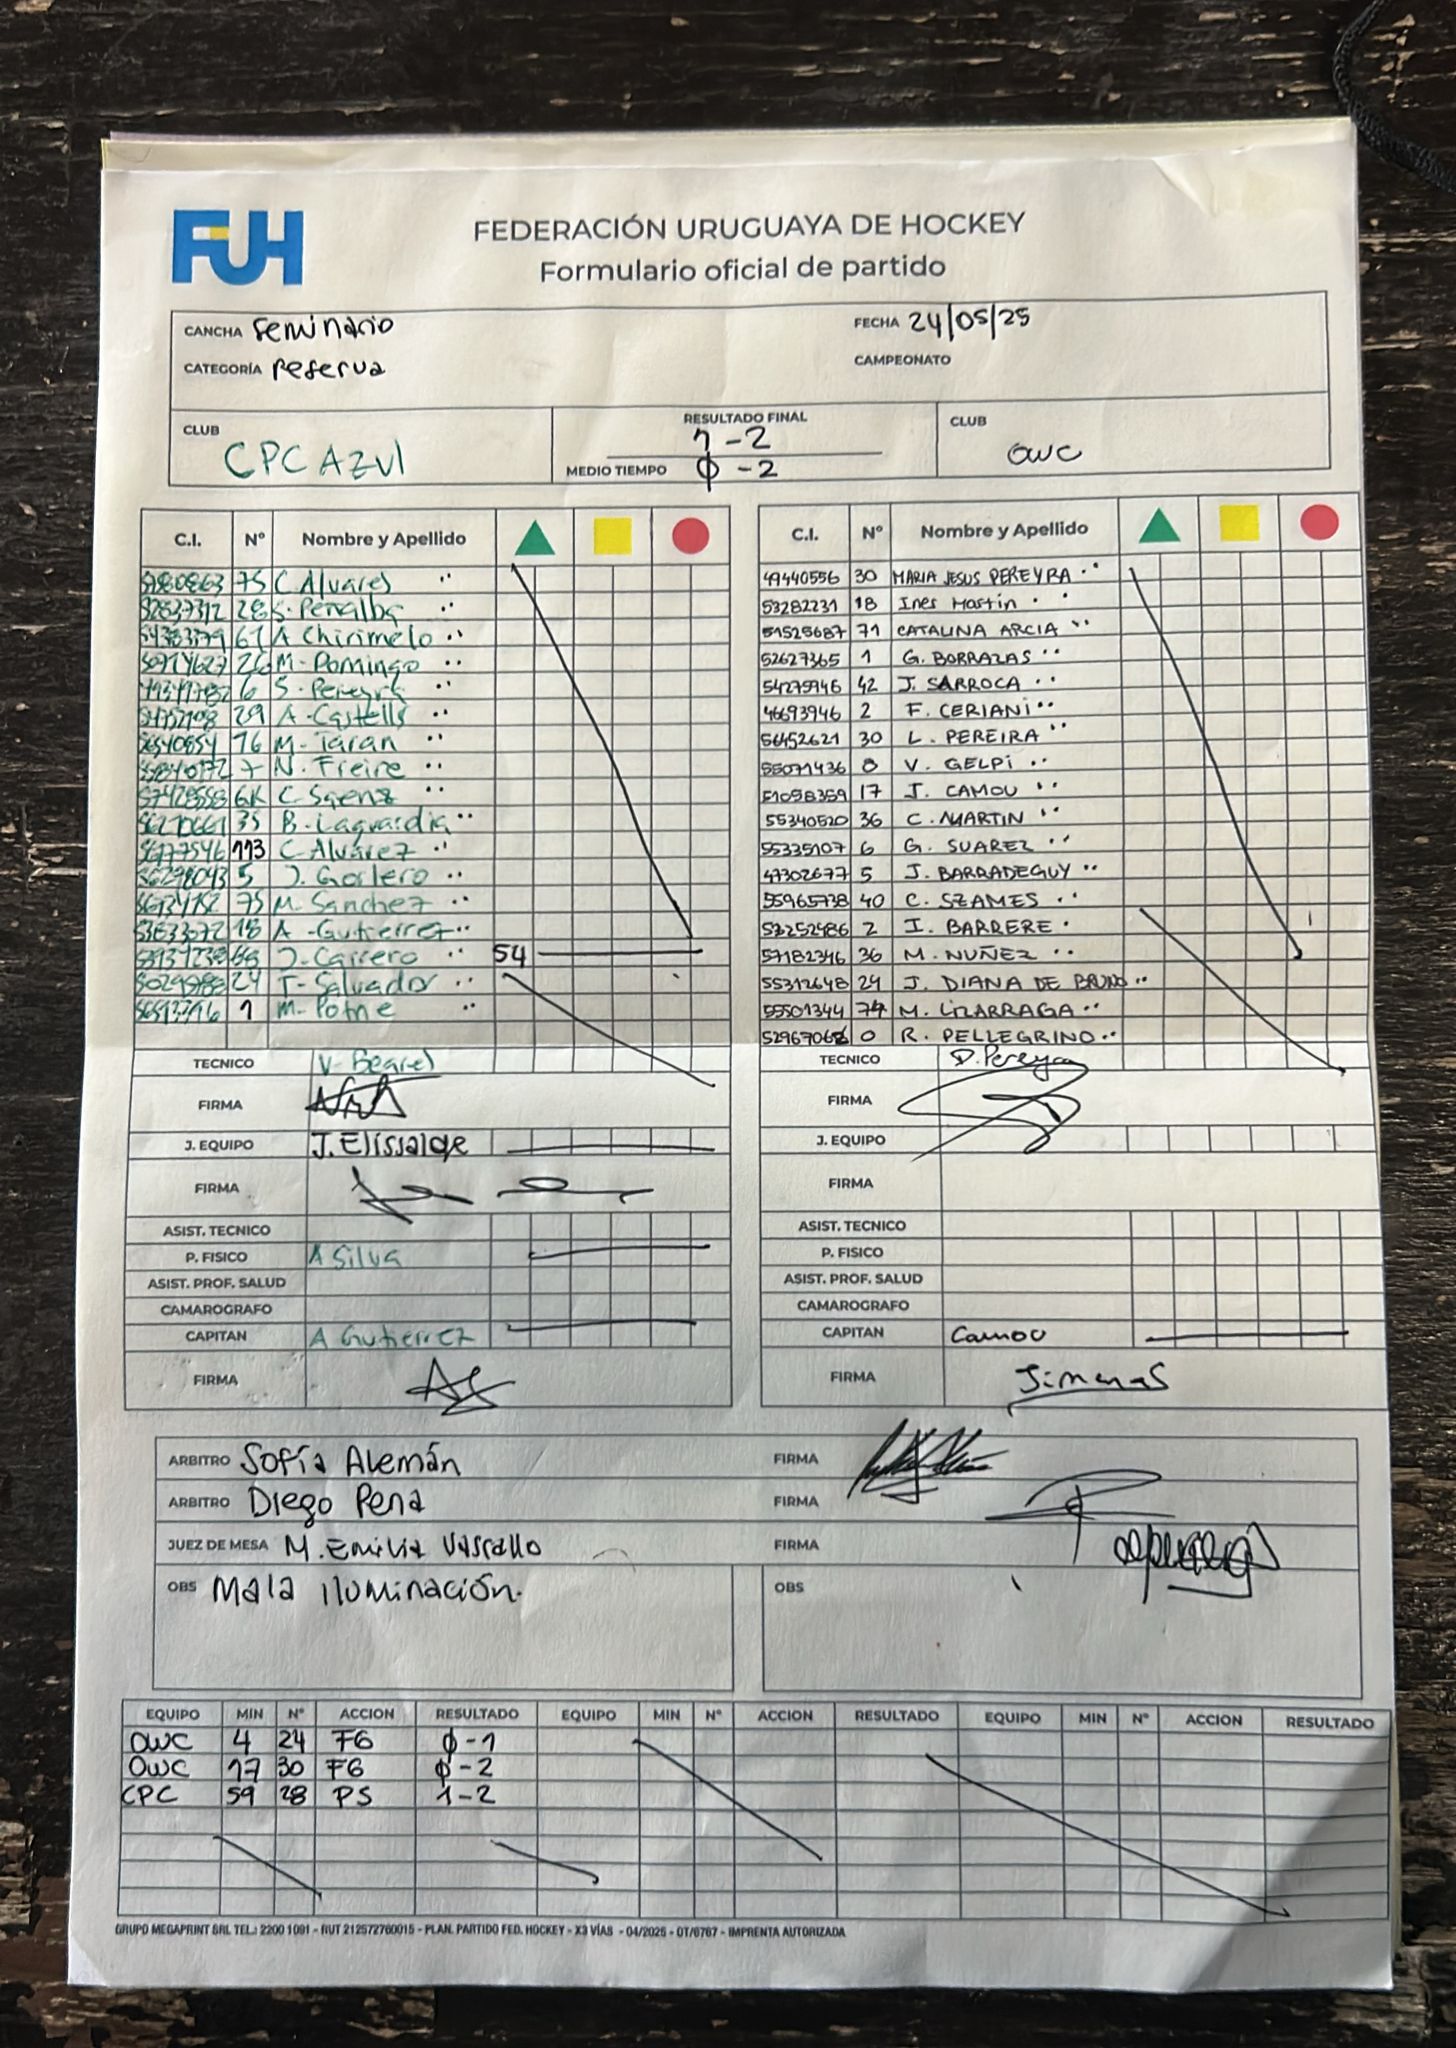 FUH
FEDERACIÓN URUGUAYA DE HOCKEY
Formulario oficial de partido
CANCHA Seminario FECHA 24/05/25
CATEGORÍA Reserva CAMPEONATO
CLUB CPC AZUL RESULTADO FINAL 1-2 CLUB OWC
MEDIO TIEMPO 0-2
C.I. Nº Nombre y Apellido
75 C. Alvares
28 S. Peñalba
61 A Chirimelo
26 M. Domingo
6 S. Pereyra
29 A. Castells
16 M. Taran
7 N. Freire
GK C Saenz
35 B. Laguardia
113 C Alvarez
5 J. Gorlero
75 M. Sanchez
18 A. Gutierrez
J. Carrero 54
24 T. Salvador
1 M. Potne
C.I. Nº Nombre y Apellido
49440556 30 MARIA JESUS PEREYRA
53282231 18 Ines Martin
51525687 71 CATALINA ARCIA
52627365 1 G. BORRAZAS
54275946 42 J. SARROCA
46693946 2 F. CERIANI
56452621 30 L. PEREIRA
55071436 0 V. GELPI
51098359 17 J. CAMOU
55340520 36 C. MARTIN
55335107 6 G. SUAREZ
47302677 5 J. BARRADEGUY
55965738 40 C. SZAMES
2 I. BARRERE
57182346 36 M. NUÑEZ
55312648 24 J. DIANA DE BRUNO
55501344 74 M. LIZARRAGA
0 R. PELLEGRINO
TECNICO V. Bearel
FIRMA
J. EQUIPO J. Elissalde
FIRMA
ASIST. TECNICO
P. FISICO A Silva
ASIST. PROF. SALUD
CAMAROGRAFO
CAPITAN A Gutierrez
FIRMA
TECNICO D. Pereyra
FIRMA
J. EQUIPO
FIRMA
ASIST. TECNICO
P. FISICO
ASIST. PROF. SALUD
CAMAROGRAFO
CAPITAN Camou
FIRMA
ARBITRO Sofía Alemán FIRMA
ARBITRO Diego Pena FIRMA
JUEZ DE MESA M. Emilia Vassallo FIRMA
OBS Mala iluminación. OBS
EQUIPO MIN Nº ACCION RESULTADO EQUIPO MIN Nº ACCION RESULTADO EQUIPO MIN Nº ACCION RESULTADO
OWC 4 24 FG 0-1
OWC 17 30 FG 0-2
CPC 59 28 PS 1-2
GRUPO MEGAPRINT SRL TEL.: 2200 1091 - RUT 212572760015 - PLAN. PARTIDO FED. HOCKEY - X3 VÍAS - 04/2025 - OT/6767 - IMPRENTA AUTORIZADA